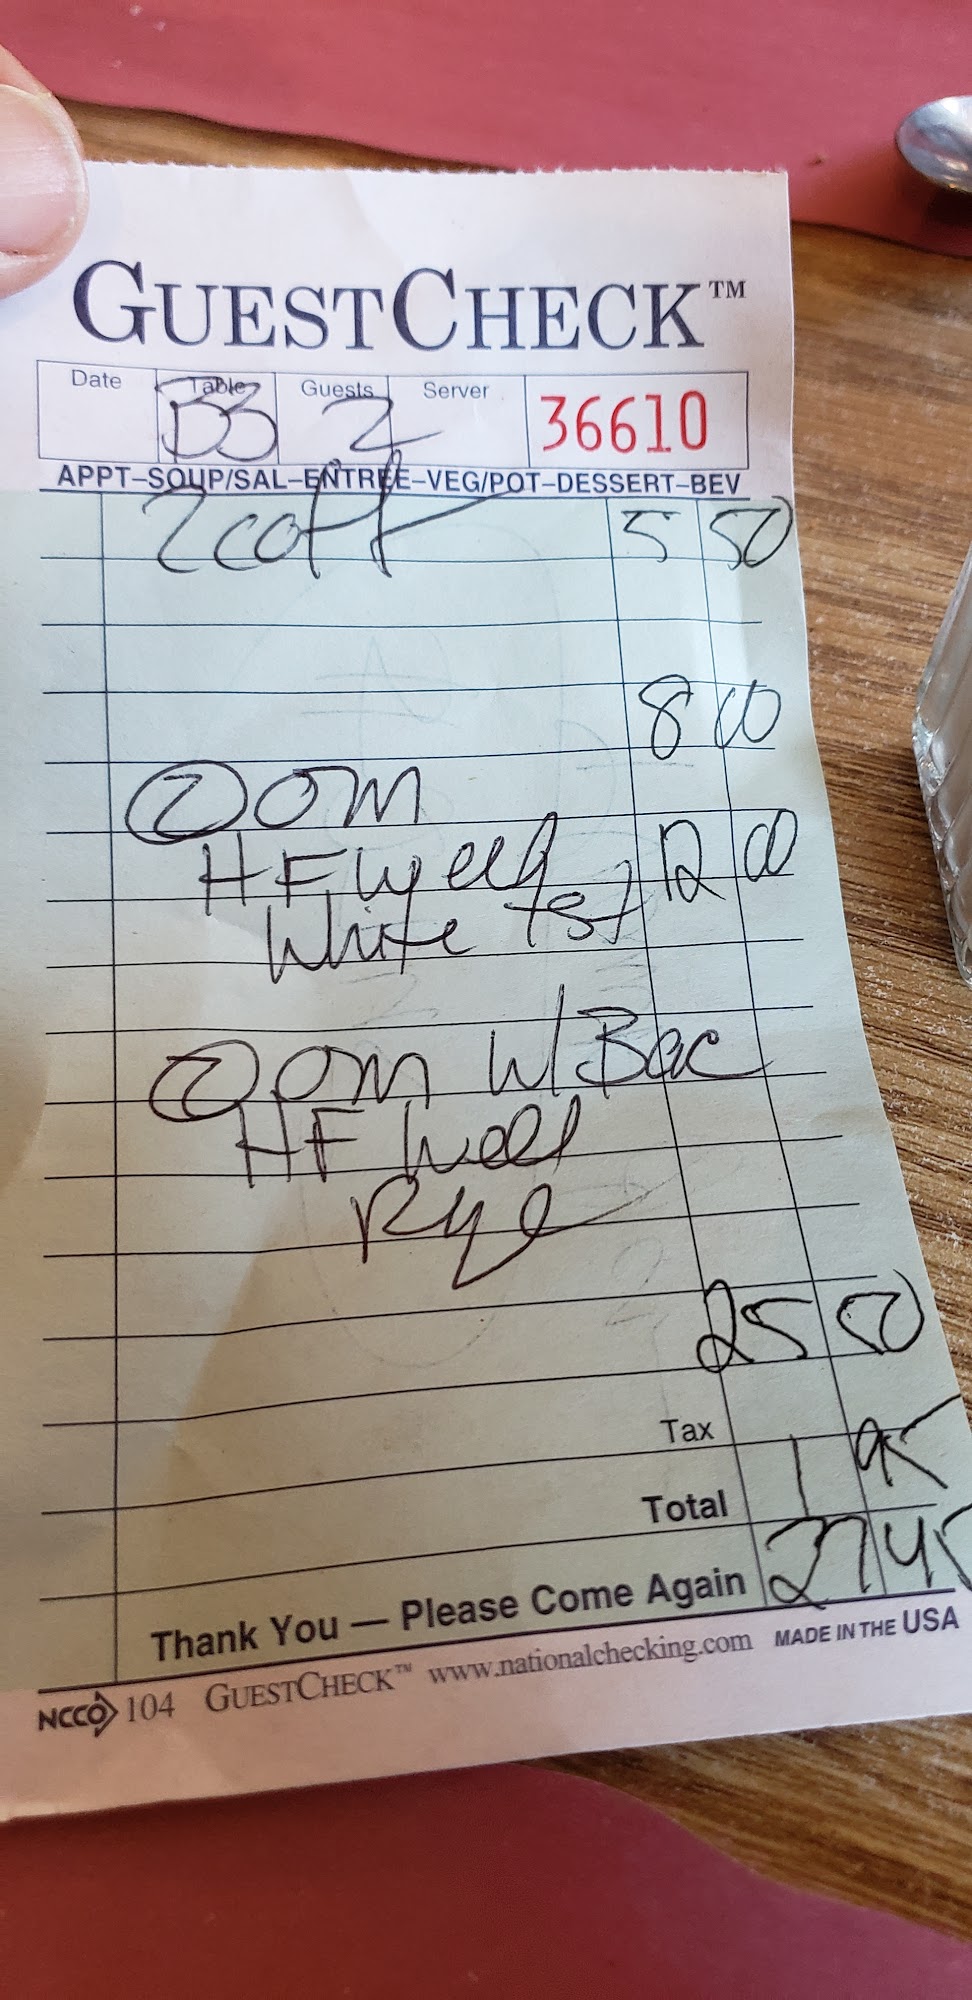 GUESTCHECK™
Date Table Guests Server 36610
B3 2
APPT–SOUP/SAL–ENTRÉE–VEG/POT–DESSERT–BEV
2 coff 5 50
8 00
② OM
HF Well 12 00
White tst
② OM W/ Bac
HF Well
Rye
25 50
Tax 1 95
Total 27 45
Thank You — Please Come Again
NCCO 104 GUESTCHECK™ www.nationalchecking.com MADE IN THE USA